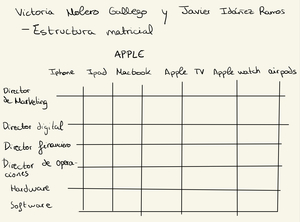 Victoria Molero Gallego y Javier Idáñez Ramos
- Estructura matricial
APPLE
Iphone Ipad Macbook Apple TV Apple watch airpods
Director
de Marketing
Director digital
Director financiero
Director de opera-
ciones
Hardware
Software